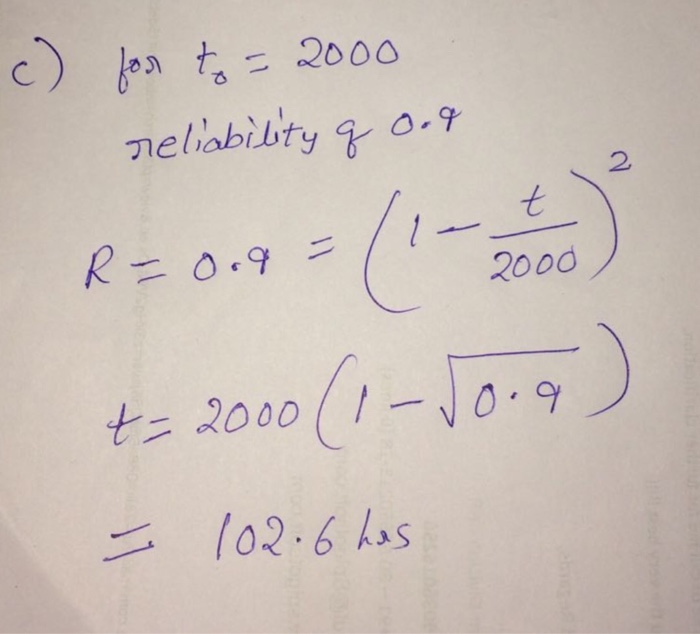 c) for t₀ = 2000
reliability of 0.9
R = 0.9 = (1 - t/2000)²
t = 2000 (1 - √0.9)
= 102.6 hrs